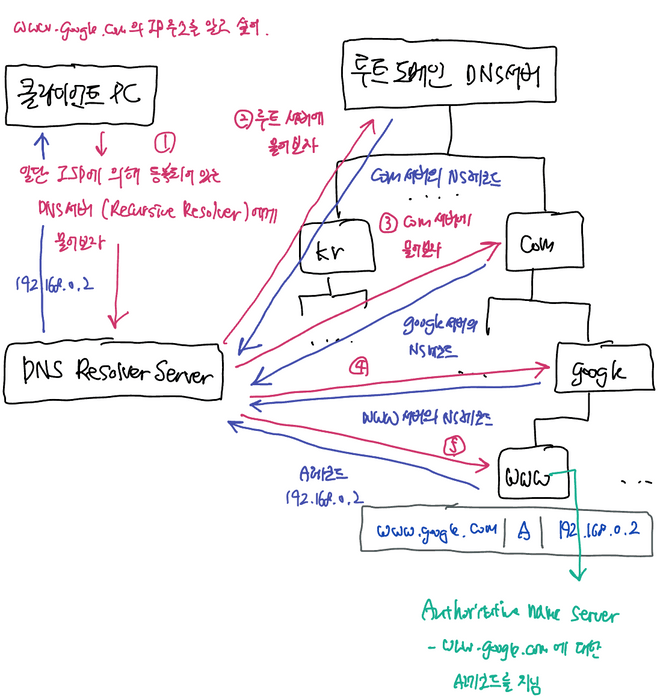 www.google.com의 IP주소를 알고 싶어.
클라이언트 PC
①
일단 ISP에 의해 등록되어 있는
DNS서버 (Recursive Resolver)에게
물어보자
192.168.0.2
DNS Resolver Server
루트 도메인 DNS서버
② 루트 서버에
물어보자
com서버의 NS레코드
....
kr
③ com서버에
물어보자
com
....
google서버의
NS레코드
...
④
google
www 서버의 NS레코드
⑤
www
...
A레코드
192.168.0.2
www.google.com | A | 192.168.0.2
Authoritative name server
- www.google.com에 대한
A레코드를 지님